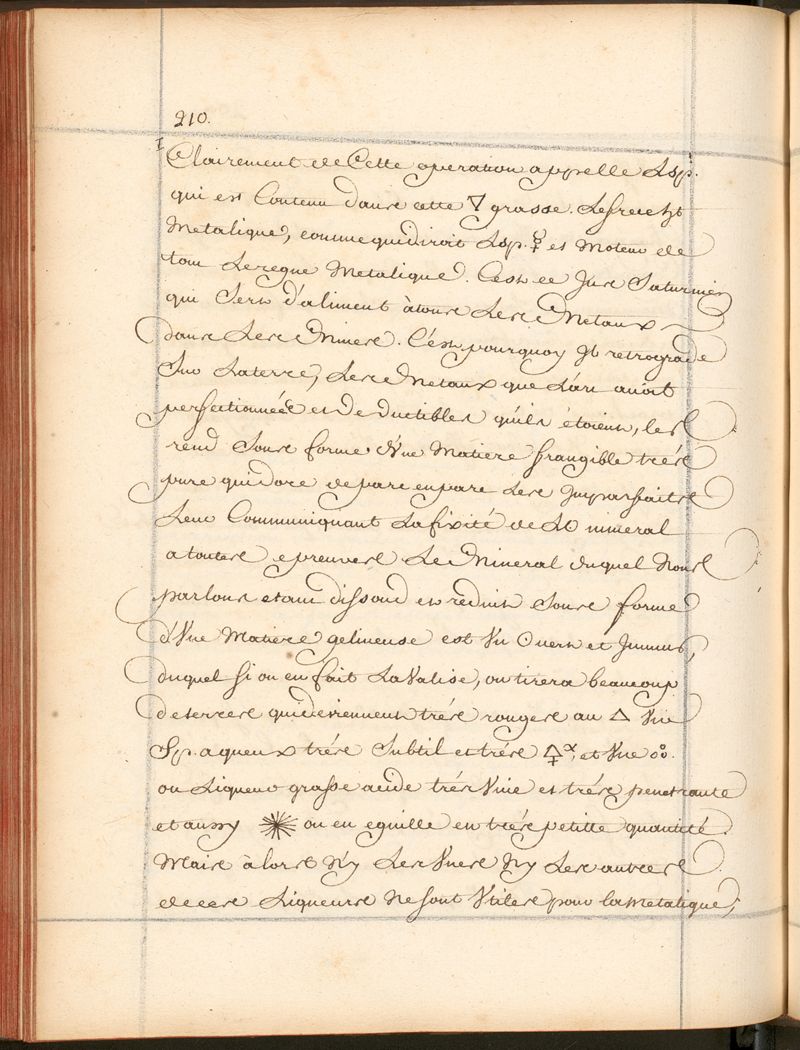 210.
Clairement de Cette operation appelle Lsp.
qui est Contenu dans cette 🜃 grasse. Le
Metalique, comme qui diroit Lsp. ☿ et Moteur de
tout Le regne Metalique. C'est ce Jus Saturnien
qui Sert d'aliment à tous Les Metaux
dans Les Mines. C'est pourquoy Jl retrograde
Sur La terre, Les Metaux que L'art avoit
perfectionnées et De ductibles qu'ils étoient, les
rend Sous forme d'Vne Matiere frangible trés
pure qui dore de part en part Les Jmparfaits
Leur Communiquant La fixité de L☉ mineral
a toutes epreuves Le Mineral duquel Nous
parlons etant dissoud et reduit Sous forme
d'Vne Matiere gelineuse est Vn Ouert et
duquel si on en fait LaValise, on tirera beaucoup
de terres qui deviennent trés rouges au △ Vne
Sp. aqueux trés Subtil et trés 🜍x, et Vne o°o.
ou Liqueur grasse acide trés Vive et trés penetrante
et aussy ✳ ou en eguille en trés petitte quantité.
Mais à lors N'y Les Vnes N'y Les autres
de ces Liqueurs Ne sont Vtiles pour la Metalique,